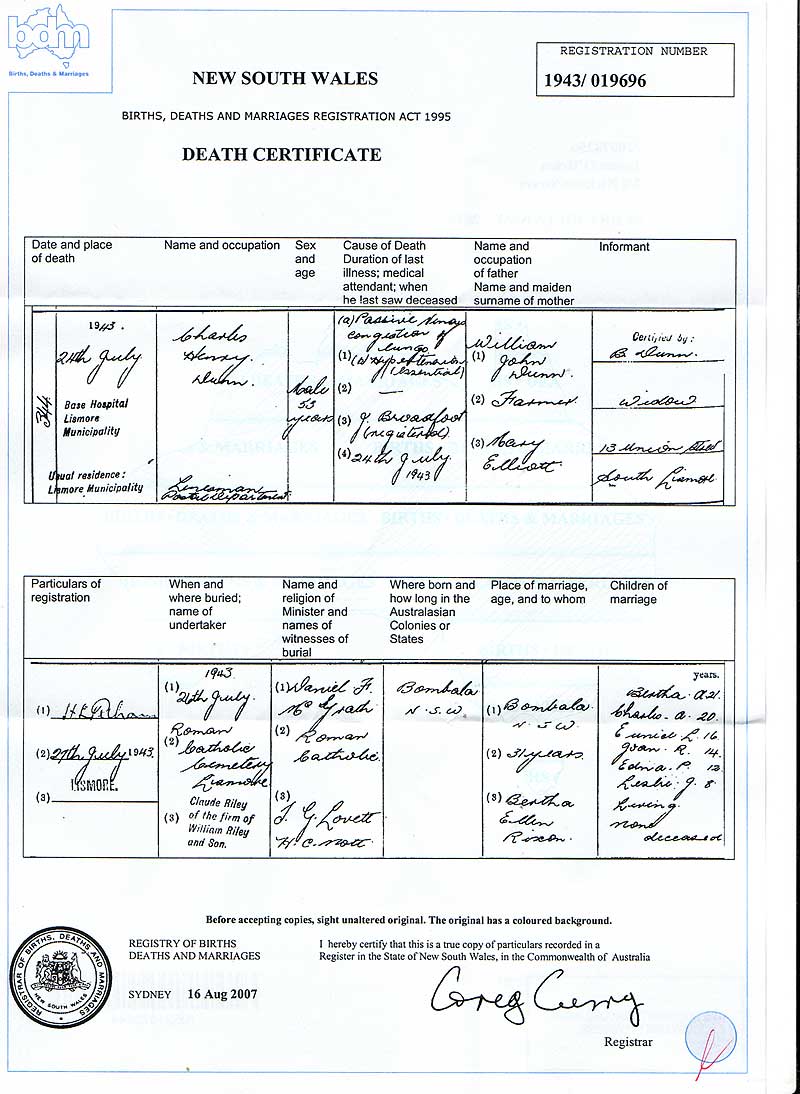 bdm
Births, Deaths & Marriages
REGISTRATION NUMBER
1943/ 019696
NEW SOUTH WALES
BIRTHS, DEATHS AND MARRIAGES REGISTRATION ACT 1995
DEATH CERTIFICATE
Date and place
of death
Name and occupation
Sex
and
age
Cause of Death
Duration of last
illness; medical
attendant; when
he last saw deceased
Name and
occupation
of father
Name and maiden
surname of mother
Informant
344
1943.
24th July
Base Hospital
Lismore
Municipality
Usual residence:
Lismore Municipality
Charles
Henry
Dunn.
Lineman
Postal Department
Male
53
years
(a) Passive
congestion of
lungs
(1) (b) Hypertension
(essential)
(2) —
(3) J. Broadfoot
(registered)
(4) 24th July
1943
William
(1) John
Dunn.
(2) Farmer.
(3) Mary
Elliott
Certified by:
B. Dunn.
Widow
13 Union Street
South Lismore
Particulars of
registration
When and
where buried;
name of
undertaker
Name and
religion of
Minister and
names of
witnesses of
burial
Where born and
how long in the
Australasian
Colonies or
States
Place of marriage,
age, and to whom
Children of
marriage
(1)
(2) 27th July 1943.
LISMORE.
(3)
1943.
(1) 26th July.
Roman
(2) Catholic
Cemetery
Lismore
Claude Riley
(3) of the firm of
William Riley
and Son.
(1) Daniel F.
McGrath
(2) Roman
Catholic.
(3)
J. G. Lovett
H. C. Nott
Bombala
N.S.W.
(1) Bombala
N.S.W.
(2) 31 years.
(3) Bertha
Ellen
Rixon.
years.
Bertha. A 21.
Charles. A. 20.
Eunice L. 16
Joan. R. 14.
Edna. P. 12.
Leslie. J. 8
Living.
none
deceased
Before accepting copies, sight unaltered original. The original has a coloured background.
REGISTRAR OF BIRTHS, DEATHS AND MARRIAGES
NEW SOUTH WALES
REGISTRY OF BIRTHS
DEATHS AND MARRIAGES
SYDNEY 16 Aug 2007
I hereby certify that this is a true copy of particulars recorded in a
Register in the State of New South Wales, in the Commonwealth of Australia
Greg Curry
Registrar